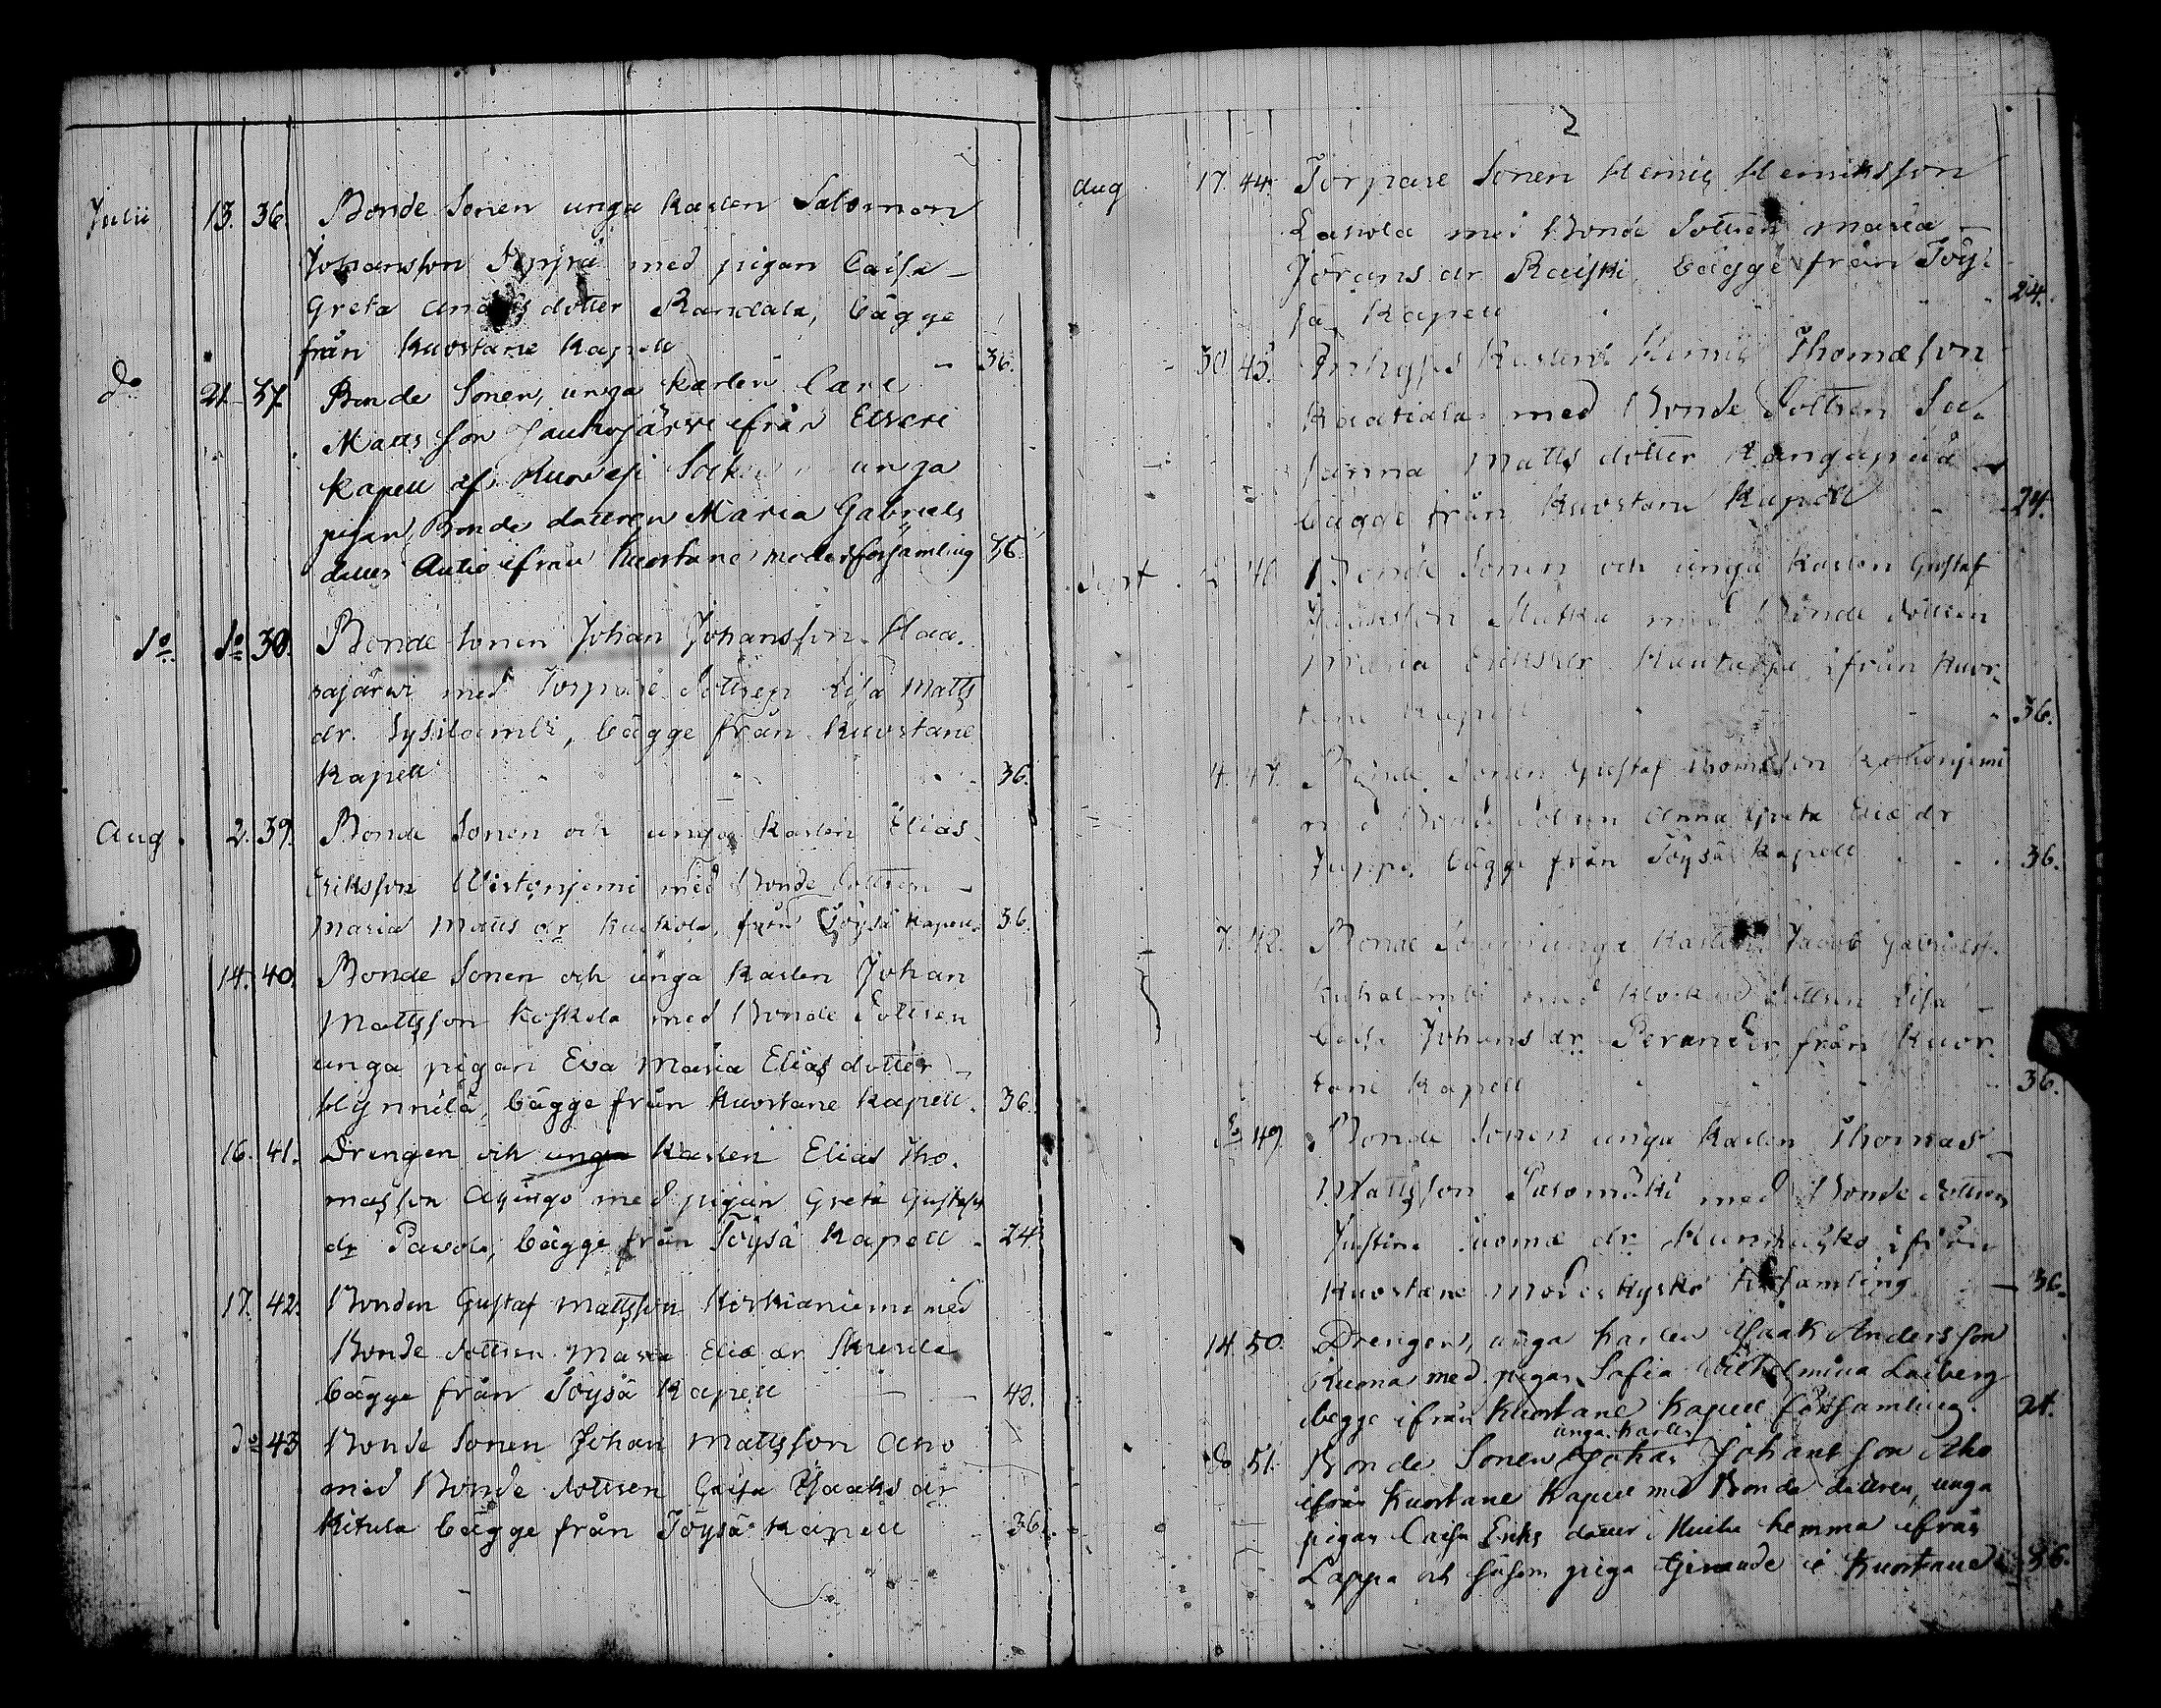 Julii 13. 36. Bonde Sonen unga Karlen Salomon
Johansson med pigan Caisa
Greta Anders dotter Randala, bägge
från Kuortane Kapell 36.
do 21. 37. Bonde Sonen, unga Karlen Carl
Matts son Jaukojärvi ifrån Etseri
Kapell af Ruovesi Socken unga
pigan, Bonde dottren Maria Gabriels
dotter Autio ifrån Kuortane moderförsamling 36.
do do 38. Bonde sonen Johan Johansson Haa-
pajärvi med Torpare Dottren Lisa Matts
dr. Sysilambi, bägge från Kuortane
Kapell 36.
Aug. 2. 39. Bonde Sonen och unga Karlen Elias
Eriksson med Bonde Dottren
Maria Matts dr Kuckola, från Töysä Kapell 36.
14. 40. Bonde Sonen och unga Karlen Johan
Mattsson Koskela med Bonde Dottren
unga pigan Eva Maria Elias dotter
Hynnilä, bägge från Kuortane Kapell. 36.
16. 41. Drengen och unga Karlen Elias Tho-
masson Asungo med pigan Greta Gustafs
dr Pavola, bägge från Töysä Kapell 24.
17. 42. Bonden Gustaf Mattsson Kirkianiemi med
Bonde dottren Maria Eliæ dr
bägge från Töysä Kapell 48.
do 43 Bonde Sonen Johan Mattsson Aho
med Bonde dottren Caisa Isaaks dr
Ritula bägge från Töysä Kapell 36.
2
Aug 17. 44. Torpare Sonen Henric Henriksson
Lasola med Bonde Dottren Maria
Jörans dr Raiski, bägge från Töy-
sä Kapell 24.
30. 45. Inhyses Karlen Henric Thomæson
Kaatiala med Bonde Dottren Su-
sanna Matts dotter Kangaspää
bägge från Kuortane Kapell 24.
Sept. 46. Bonde Sonen och unga Karlen Gustaf
Mutka med Bonde dottren
Maria Eriks dr ifrån Kuor-
tane Kapell 36.
4. 47. Bonde Sonen Gustaf Thomasson
med Bonde Dottren Anna Greta Eliæ dr
Juppo, bägge från Töysä Kapell 36.
7. 48. Bonde Sonen unga Karlen Jacob Gabrielss.
Kuhalambi med Klockare Dottren Lisa
Caisa Johans dr Perander, från Kuor-
tane Kapell 36.
do 49. Bonde Sonen unga Karlen Thomas
Mattsson Salomäki med Bonde dottren
Justina dr ifrån
Kuortane Moderkyrko församling 36.
14. 50. Drengen, unga karlen Isaak Andersson
Kuona med pigan Sofia Wilhelmina Laiberg
begge ifrån Kuortane Kapell församling. 24.
unga Karlen
do 51. Bonde Sonen Johan Johans son Aho
ifrån Kuortane Kapell med Bonde dottren, unga
pigan Caisa Eriks dotter hemma ifrån
Lappo och såsom piga tjenande i Kuortane 36.